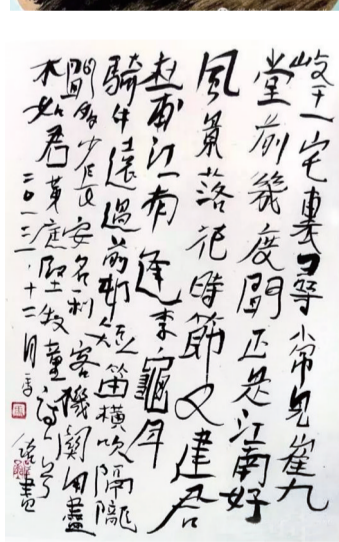 岐王宅裏尋常見崔九
堂前幾度聞正是江南好
風景落花時節又逢君
杜甫江南逢李龜年
騎牛遠過前村短笛橫吹隔隴
聞多少長安名利客機關用盡
不如君黃庭堅牧童詩一首
二〇一三·十二月 書